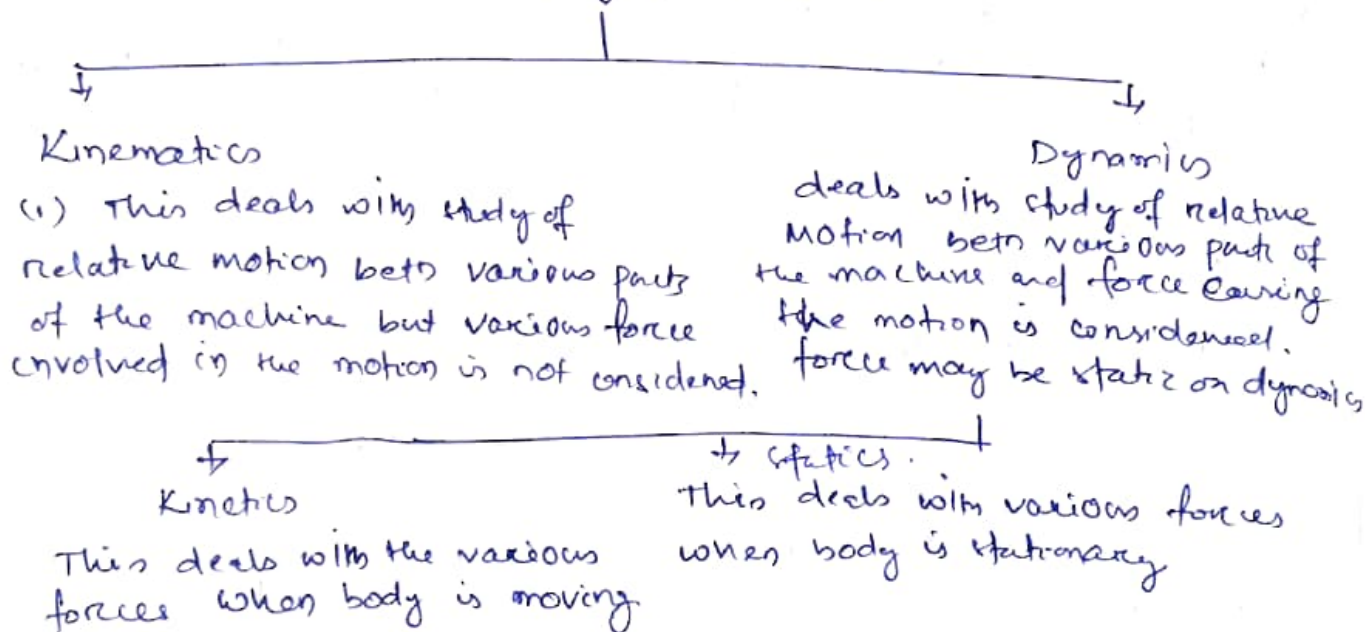 Kinematics
(1) This deals with study of
relative motion betn various parts
of the machine but various force
involved in the motion is not considered.
Dynamics
deals with study of relative
motion betn various parts of
the machine and force causing
the motion is considered.
force may be static or dynamics
Kinetics
This deals with the various
forces when body is moving
Statics.
This deals with various forces
when body is stationary